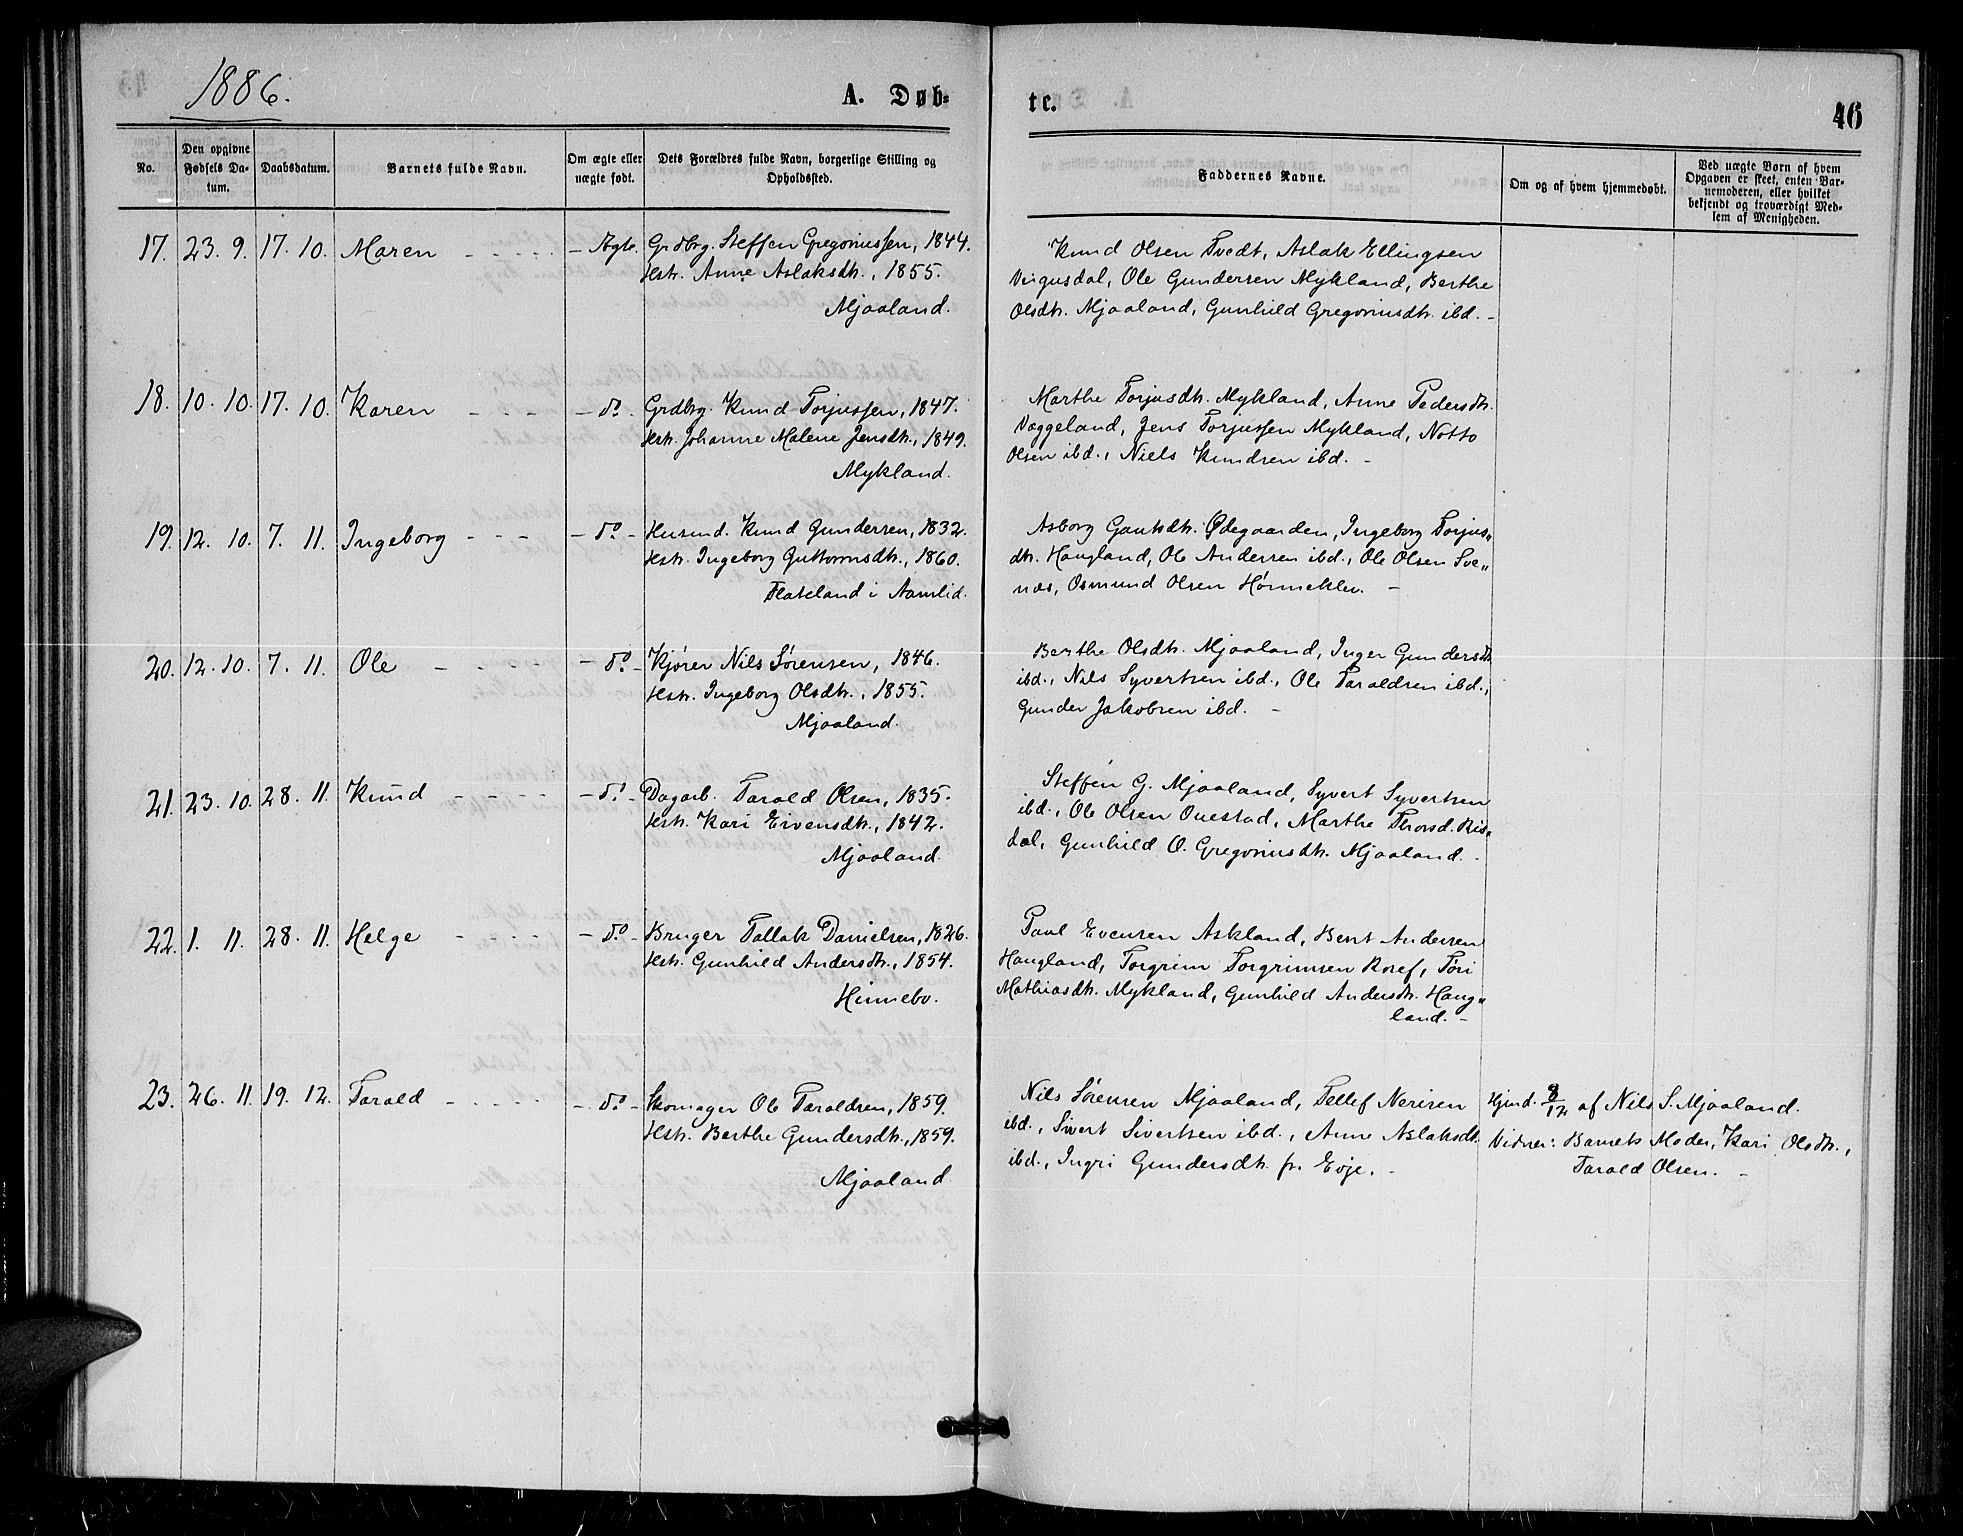 1886.
A. Døb=
te.
46
No.
Den opgivne Fødsels Da-
tum.
Daabsdatum.
Barnets fulde Navn.
Om ægte eller
uægte født.
Dets Forældres fulde Navn, borgerlige Stilling og
Opholdssted.
Faddernes Navne.
Om og af hvem hjemmedøbt.
Ved uægte Børn af hvem
Opgaven er skeet, enten Bar-
nemoderen, eller hvilket
bekjendt og troværdigt Med-
lem af Menigheden.
17. 23. 9. 17. 10. Maren - - - - - - Ægte. Grdbrg. Steffen Gregoriussen, 1844.
Hstr. Anne Aslaksdtr., 1855.
Mjaaland.
Knud Olsen Tvedt, Aslak Ellingsen
Vegusdal, Ole Gundersen Mykland, Berthe
Olsdtr. Mjaaland, Gunhild Gregoriusdtr. ibd. -
18. 10. 10. 17. 10. Karen - - - - - do. Grdbrg. Knud Torjussen, 1847.
Hstr. Johanne Malene Jensdtr., 1849.
Mykland.
Marthe Torjusdtr. Mykland, Anne Pedersdtr.
Væggeland, Jens Torjussen Mykland, Notto
Olsen ibd., Niels Knudsen ibd. -
19. 12. 10. 7. 11. Ingeborg - - - - do - Husmd. Knud Gundersen, 1832.
Hstr. Ingeborg Guttormsdtr., 1860.
Flateland i Aamlid.
Asborg Gautsdtr. Ødegaarden, Ingeborg Torjus„
dtr. Haugland, Ole Andersen ibd., Ole Olsen Sve„
næs, Osmund Olsen Hønneklev. -
20. 12. 10. 7. 11. Ole - - - - - do - Kjører Nils Sørensen, 1846.
Hstr. Ingeborg Olsdtr., 1855.
Mjaaland.
Berthe Olsdtr. Mjaaland, Inger Gundersdtr.
ibd., Nils Syvertsen ibd., Ole Taraldsen ibd.,
Gunder Jakobsen ibd. -
21. 23. 10. 28. 11. Knud - - - - - do - Dagarb. Tarald Olsen, 1835.
Hstr. Kari Eivensdtr., 1842.
Mjaaland.
Steffen G. Mjaaland, Syvert Syvertsen
ibd., Ole Olsen Ouestad, Marthe Thorsd. Ris„
dal, Gunhild O. Gregoriusdtr. Mjaaland. -
22. 1. 11. 28. 11. Helge - - - - - do - Bruger Tallak Danielsen, 1826.
Hstr. Gunhild Andersdtr., 1854.
Hinnebo.
Paul Evensen Askland, Bent Andersen
Haugland, Torgrim Torgrimsen Rosef, Tøri
Mathiasdtr. Mykland, Gunhild Andersdtr. Haug„
land. -
23. 26. 11. 19. 12. Tarald - - - - - do - Skomager Ole Taraldsen, 1859.
Hstr. Berthe Gundersdtr., 1859.
Mjaaland.
Nils Sørensen Mjaaland, Tellef Nerisen
ibd., Sivert Sivertsen ibd., Anne Aslaksdtr.
ibd., Ingri Gundersdtr. fr. Evje. -
Hjmd. 8/12 af Nils S. Mjaaland.
Vidner: Barnets Moder, Kari Olsdtr.,
Tarald Olsen. -